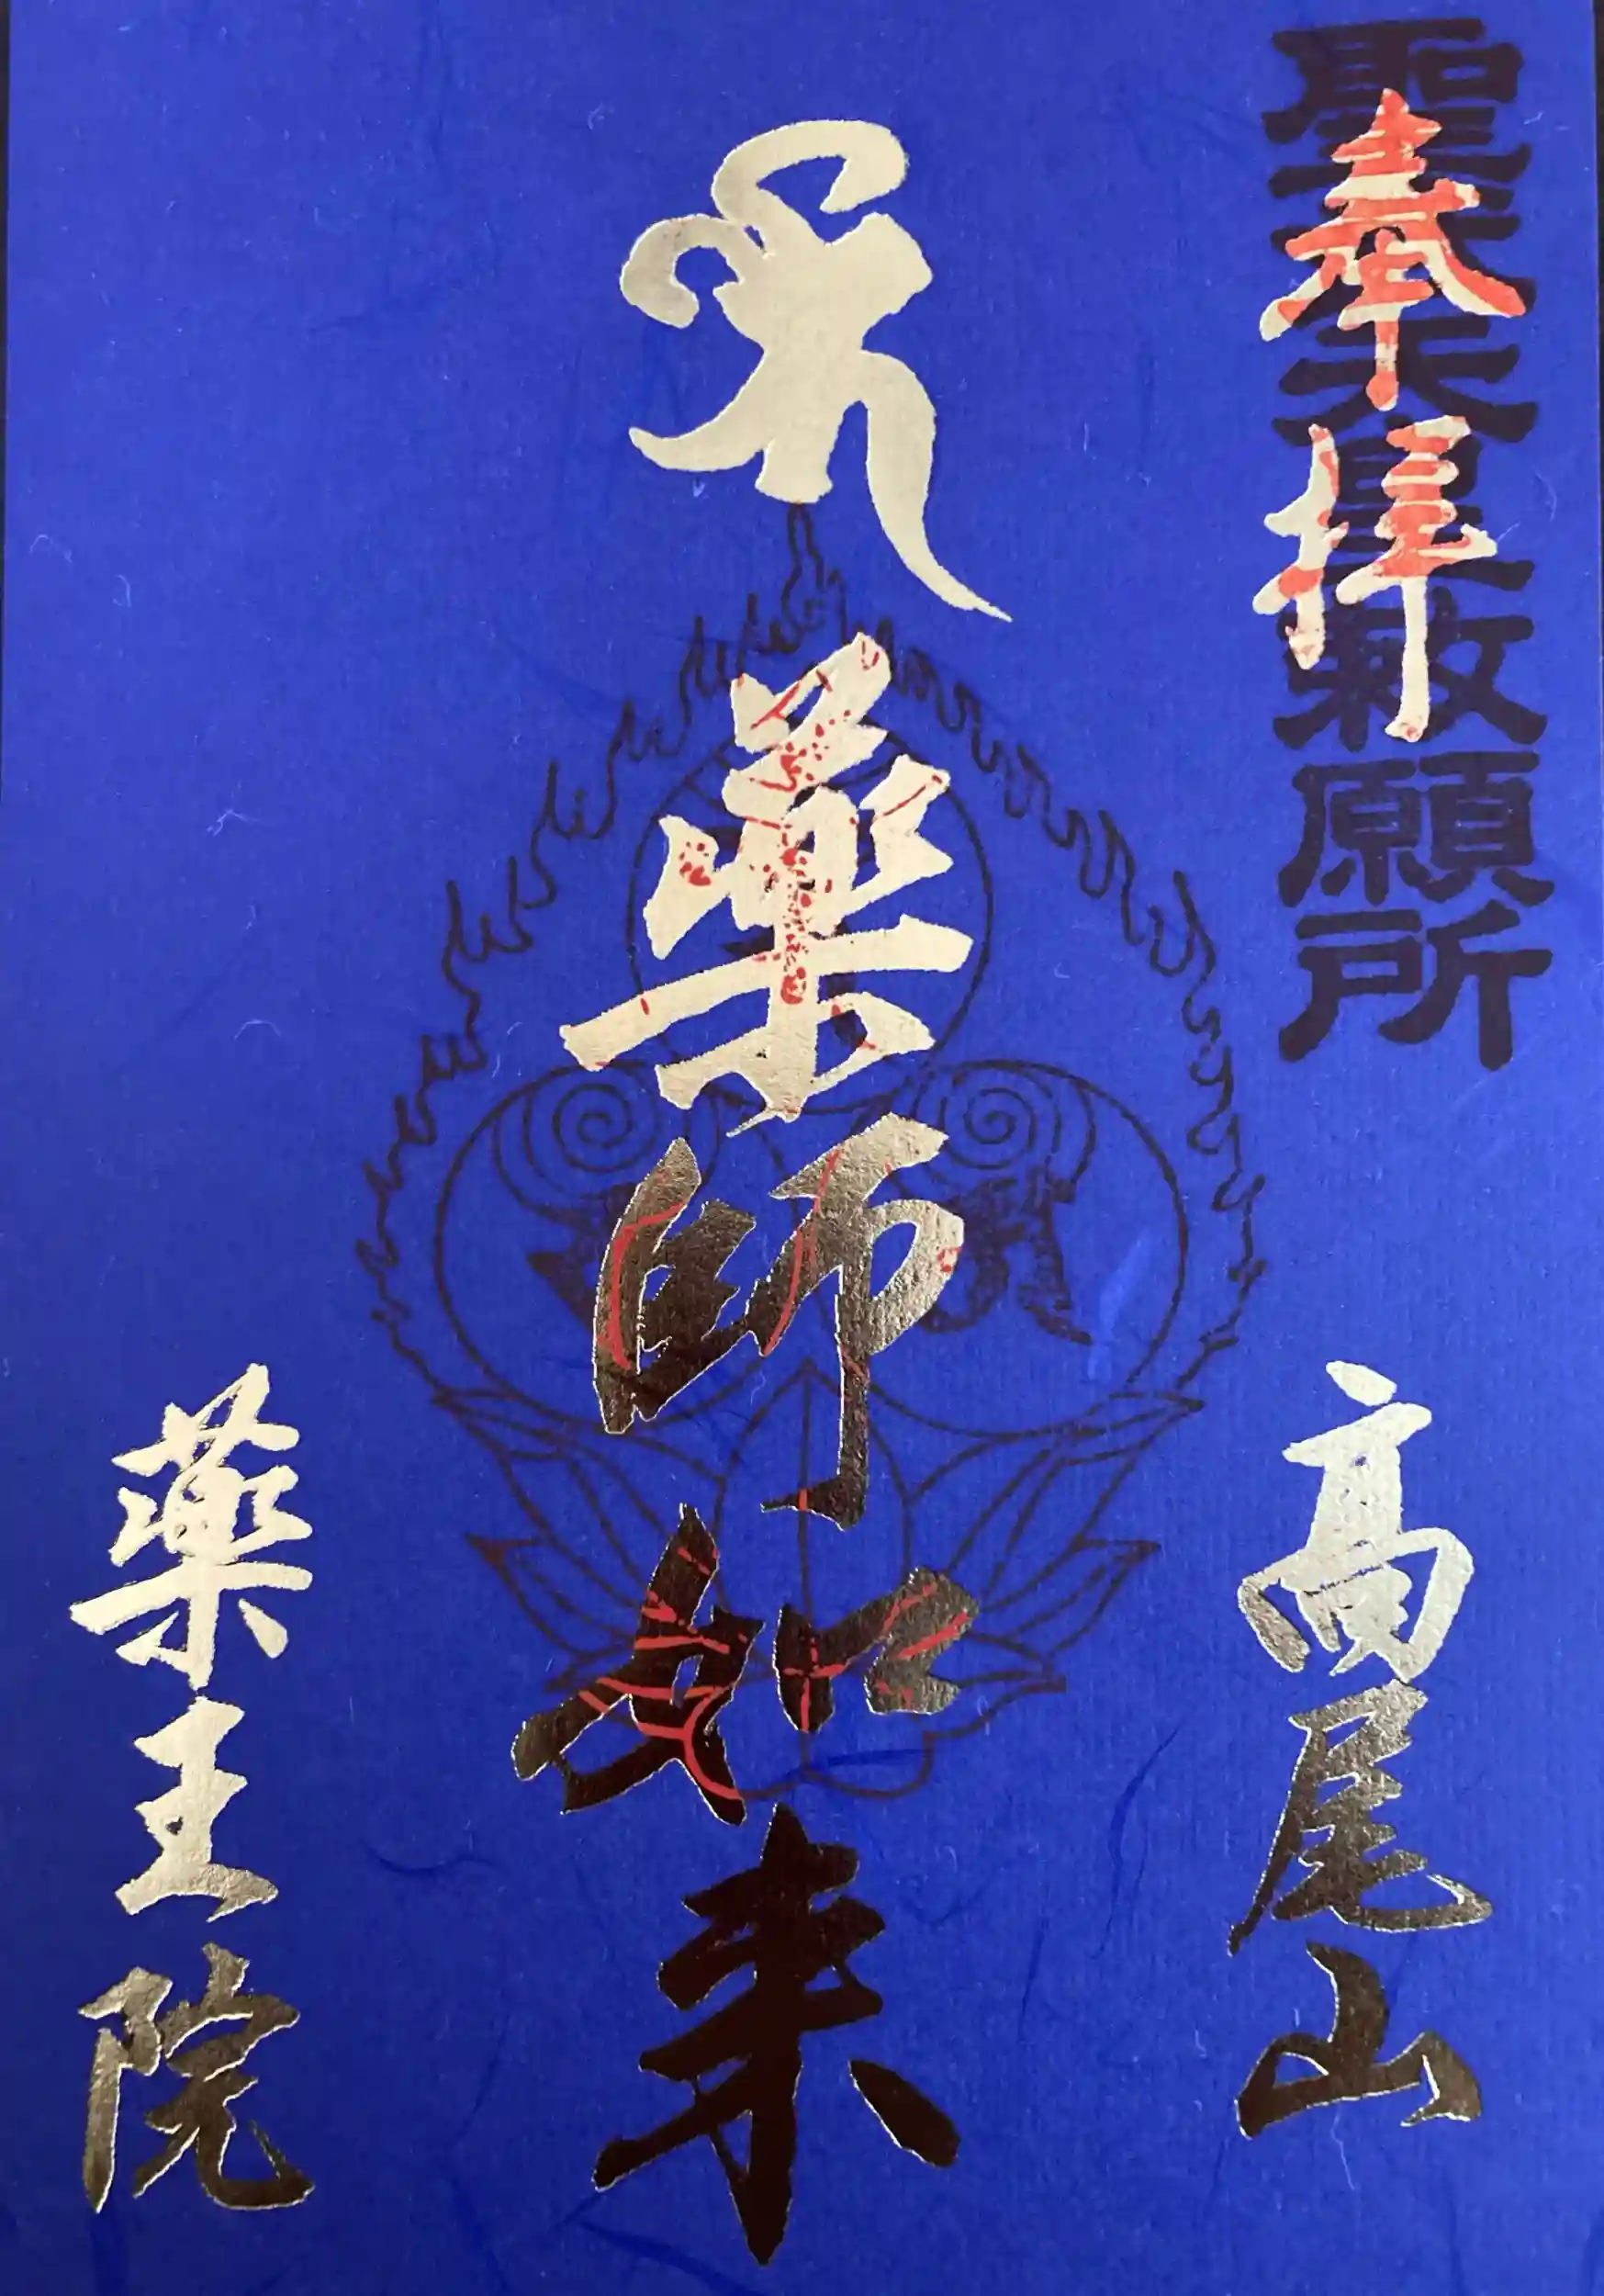 聖武天皇敕願所
奉拝
高尾山
薬師如来
薬王院